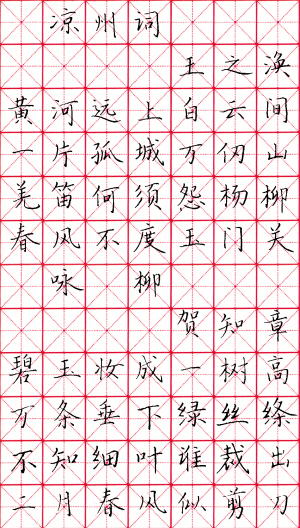 凉州词
王之涣
黄河远上白云间
一片孤城万仞山
羌笛何须怨杨柳
春风不度玉门关
咏柳
贺知章
碧玉妆成一树高
万条垂下绿丝绦
不知细叶谁裁出
二月春风似剪刀